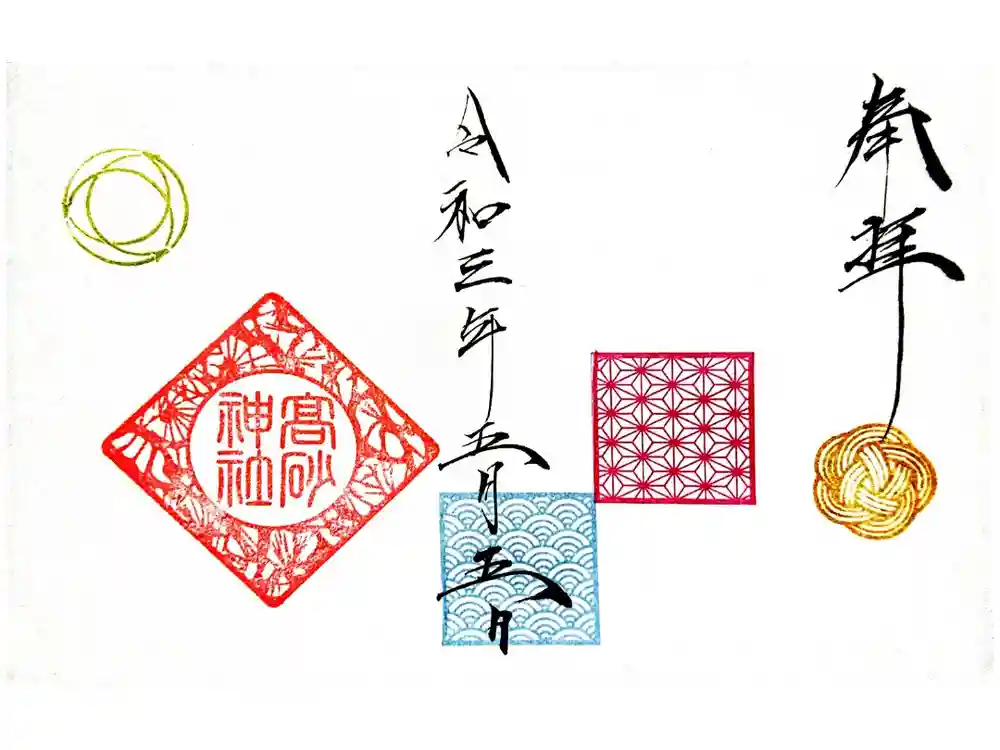 奉拝
令和三年五月五日
髙砂
神社